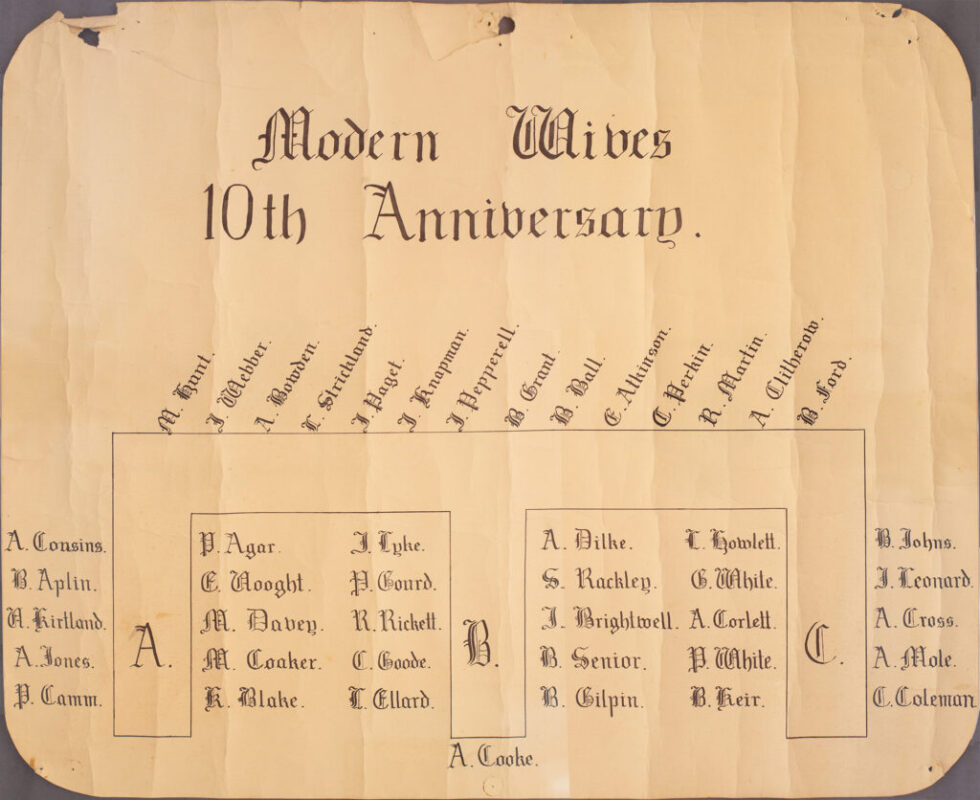 Modern Wives
10th Anniversary.
M. Hunt.
J. Webber.
A. Bowden.
L. Strickland.
J. Paget.
J. Knapman.
J. Pepperell.
B. Grant.
B. Ball.
E. Atkinson.
C. Perkin.
R. Martin.
A. Clitherow.
B. Ford.
A. Cousins.
B. Aplin.
U. Kirtland.
A. Jones.
P. Camm.
A.
P. Agar.
E. Vooght.
M. Davey.
M. Coaker.
K. Blake.
J. Lyke.
P. Gourd.
R. Rickett.
C. Goode.
L. Ellard.
B.
A. Dilke.
S. Rackley.
J. Brightwell.
B. Senior.
B. Gilpin.
L. Howlett.
G. White.
A. Corlett.
P. White.
B. Keir.
C.
B. Johns.
J. Leonard.
A. Cross.
A. Mole.
C. Coleman
A. Cooke.